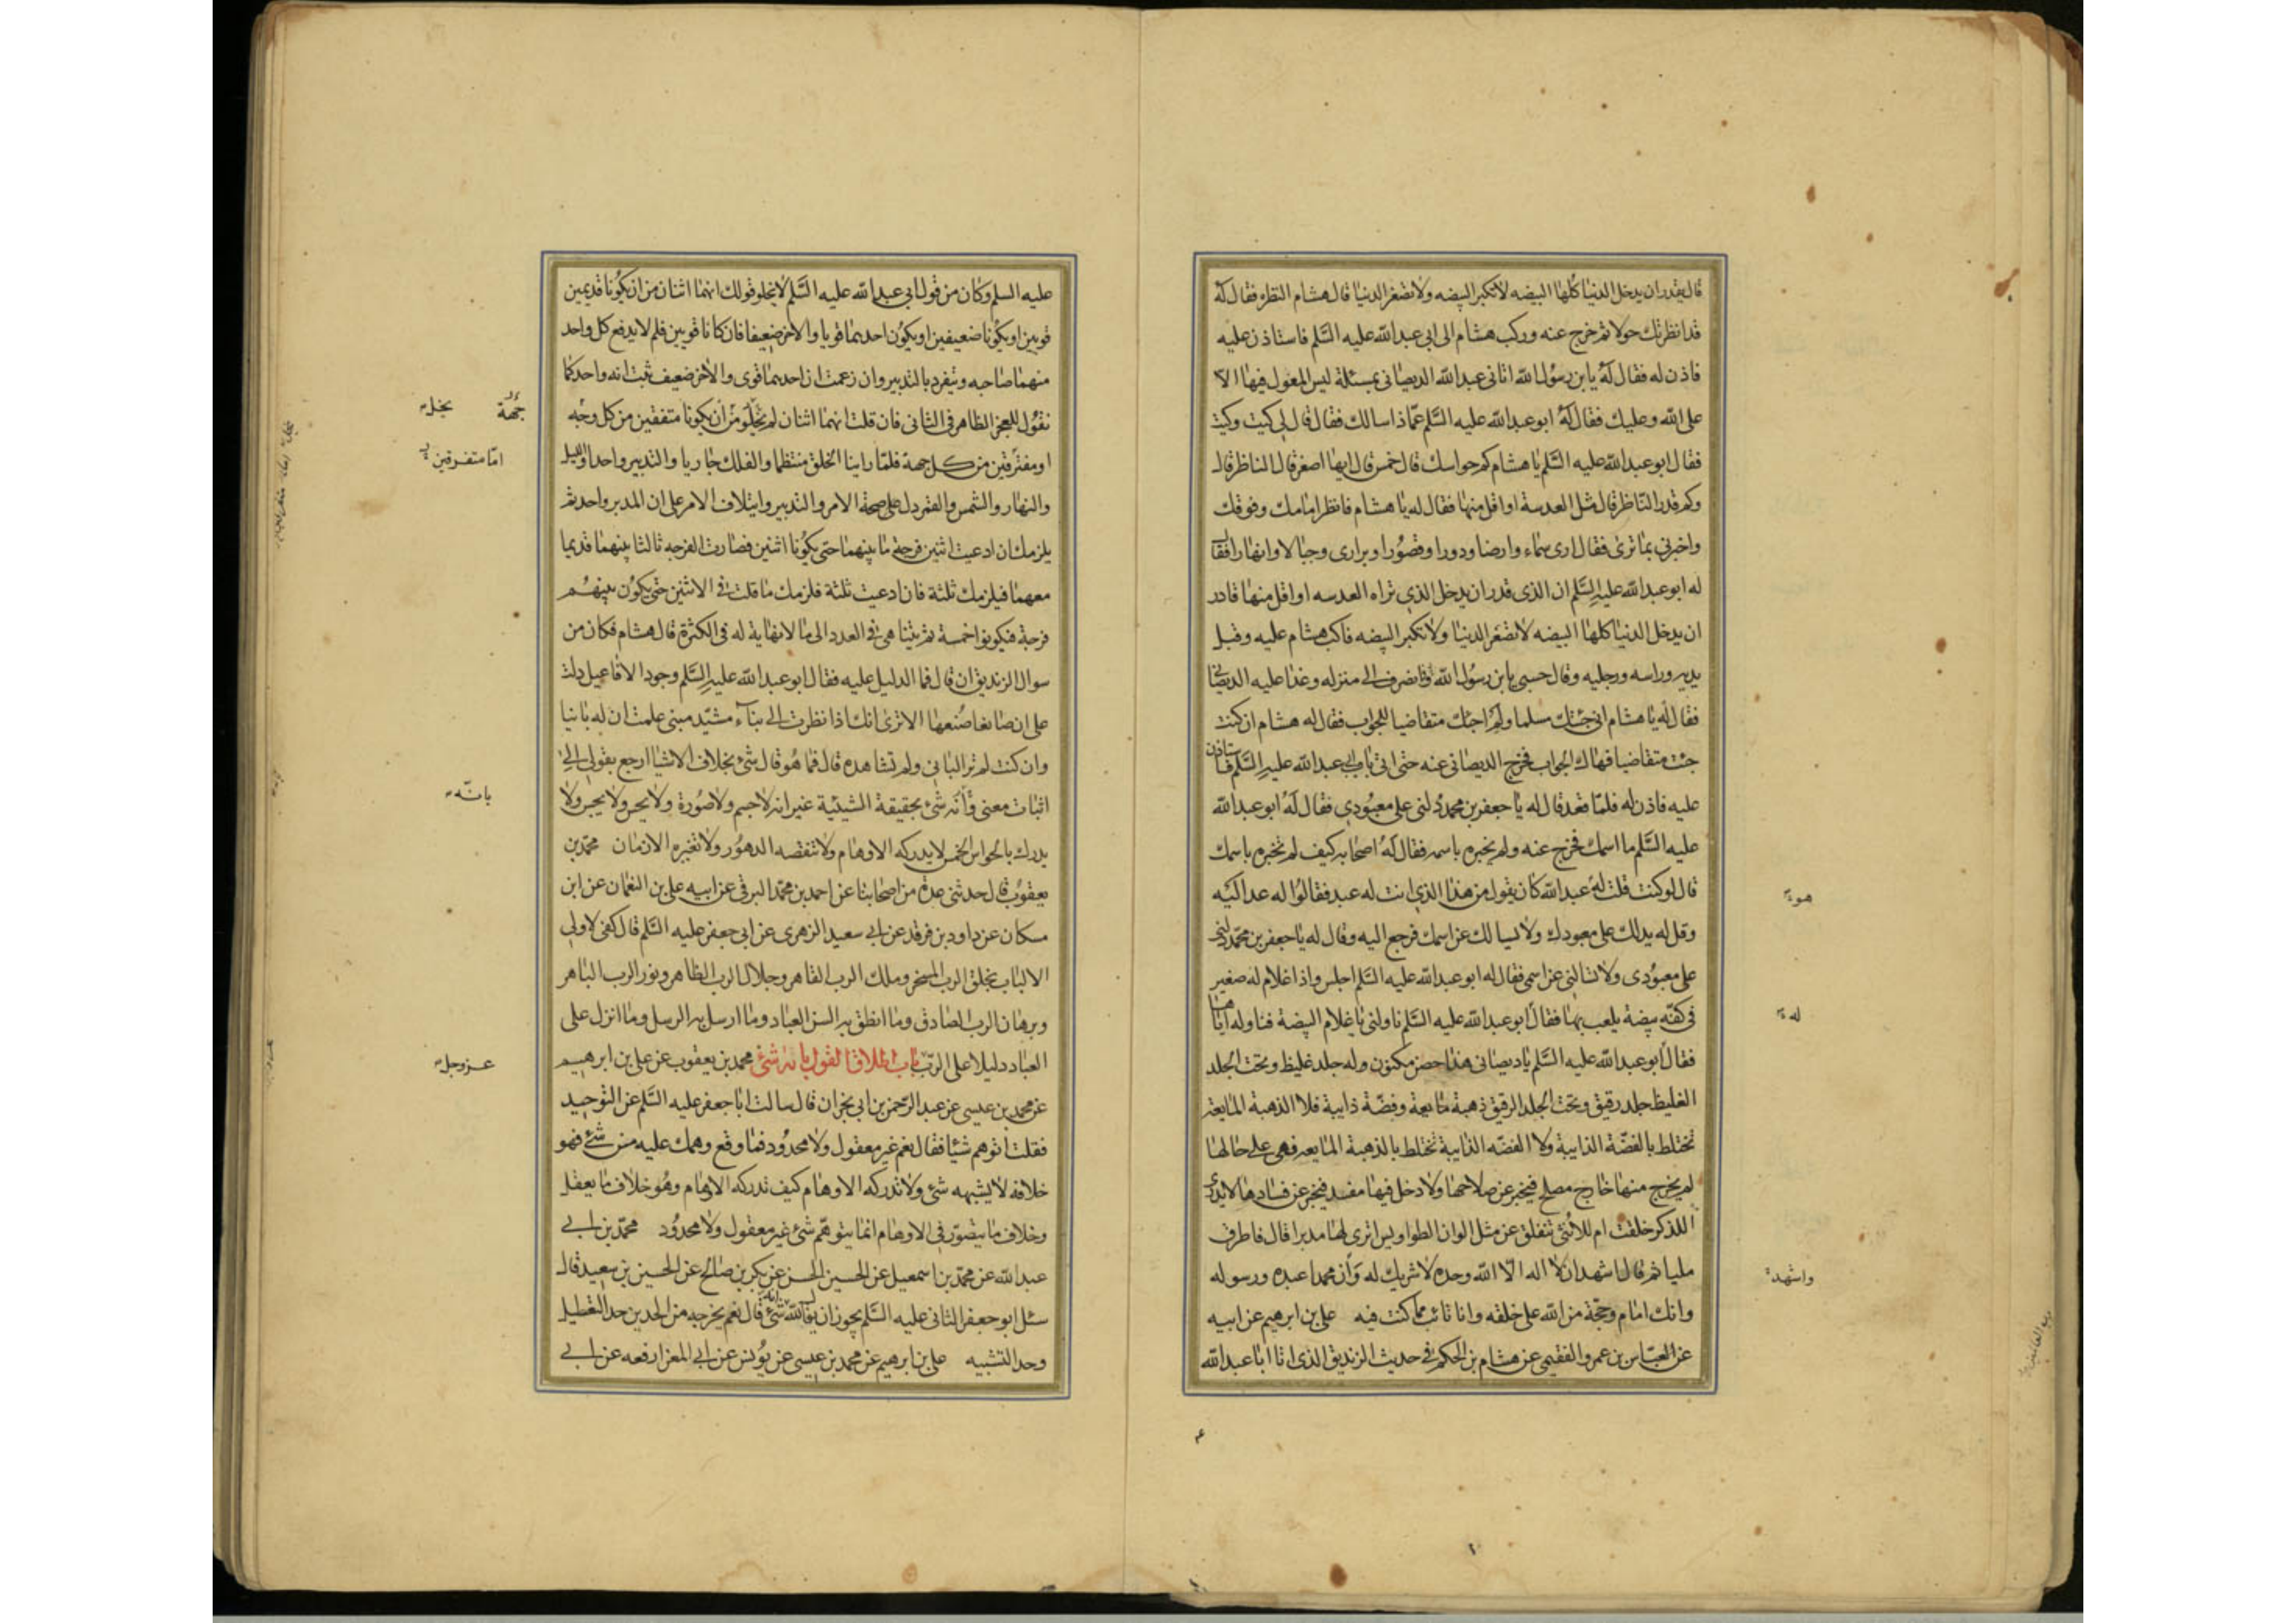 قال يقدر ان يدخل الدنيا كلها البيضه لا تكبر البيضه ولا تصغر الدنيا قال هشام النظره فقال له
قد انظرتك حولا ثم خرج عنه وركب هشام الى ابى عبد الله عليه السلم فاستاذن عليه
فاذن له فقال له يا بن رسول الله اتانى عبد الله الديصانى بمسئلة ليس المعول فيها الا
على الله وعليك فقال له ابو عبد الله عليه السلم عما ذا سالك فقال قال لى كيت وكيت
فقال ابو عبد الله عليه السلم يا هشام كم حواسك قال خمس قال ايها اصغر قال الناظر قال
وكم قدر الناظر قال مثل العدسة او اقل منها فقال له يا هشام فانظر امامك وفوقك
واخبرنى بما ترى فقال ارى سماء وارضا ودورا وقصورا وبرارى وجبالا وانهارا فقال
له ابو عبد الله عليه السلم ان الذى قدر ان يدخل الذى تراه العدسه او اقل منها قادر
ان يدخل الدنيا كلها البيضه لا تصغر الدنيا ولا تكبر البيضه فاكب هشام عليه وقبل
يديه وراسه ورجليه وقال حسبى يا بن رسول الله وانصرف الى منزله وغدا عليه الديصانى
فقال له يا هشام انى جئتك مسلما ولم اجئك متقاضيا للجواب فقال له هشام ان كنت
جئت متقاضيا فهاك الجواب فخرج الديصانى عنه حتى اتى باب ابى عبد الله عليه السلم فاستاذن
عليه فاذن له فلما قعد قال له يا جعفر بن محمد دلنى على معبودى فقال له ابو عبد الله
عليه السلم ما اسمك فخرج عنه ولم يخبره باسمه فقال له اصحابه كيف لم تخبره باسمك
قال لو كنت قلت له عبد الله كان يقول من هذا الذى انت له عبد فقالوا له عد اليه
هو
وقل له يدلك على معبودك ولا يسالك عن اسمك فرجع اليه وقال له يا جعفر بن محمد دلنى
على معبودى ولا تسالنى عن اسمى فقال له ابو عبد الله عليه السلم اجلس واذا غلام له صغير
فى كفه بيضة يلعب بها فقال ابو عبد الله عليه السلم ناولنى يا غلام البيضة فناوله اياها
له
فقال ابو عبد الله عليه السلم يا ديصانى هذا حصن مكنون وله جلد غليظ وتحت الجلد
الغليظ جلد رقيق وتحت الجلد الرقيق ذهبة مايعة وفضة ذايبة فلا الذهبة المايعة
تختلط بالفضة الذايبة ولا الفضه الذايبة تختلط بالذهبة المايعه فهى على حالها
لم يخرج منها خارج مصلح فيخبر عن صلاحها ولا دخل فيها مفسد فيخبر عن فسادها لا يدرى
اللذكر خلقت ام للانثى تنفلق عن مثل الوان الطواويس اترى لها مدبرا قال فاطرق
مليا ثم قال اشهد ان لا اله الا الله وحده لا شريك له وان محمدا عبده ورسوله
واشهد
وانك امام وحجة من الله على خلقه وانا تائب مما كنت فيه على بن ابرهيم عن ابيه
عن العباس بن عمرو الفقيمى عن هشام بن الحكم فى حديث الزنديق الذى اتا ابا عبد الله
عليه السلم وكان من قول ابى عبد الله عليه السلم لا يخلو قولك انهما اثنان من ان يكونا قديمين
قويين او يكونا ضعيفين او يكون احدهما قويا والاخر ضعيفا فان كانا قويين فلم لا يدفع كل واحد
منهما صاحبه ويتفرد بالتدبير وان زعمت ان احدهما قوى والاخر ضعيف ثبت انه واحد كما
نقول للعجز الظاهر فى الثانى فان قلت انهما اثنان لم يخلو من ان يكونا متفقين من كل وجه
جهة يخل
او مفترقين من كل جهة فلما راينا الخلق منتظما والفلك جاريا والتدبير واحدا والليل
اما متفرقين
والنهار والشمس والقمر دل على صحة الامر والتدبير وايتلاف الامر على ان المدبر واحد ثم
يلزمك ان ادعيت اثنين فرجة ما بينهما حتى يكونا اثنين فصارت الفرجه ثالثا بينهما قديما
معهما فيلزمك ثلثة فان ادعيت ثلثة فلزمك ما قلت فى الاثنين حتى يكون بينهم
فرجة فيكونوا خمسة ثم يتناهى فى العدد الى ما لا نهاية له فى الكثرة قال هشام فكان من
سوال الزنديق ان قال فما الدليل عليه فقال ابو عبد الله عليه السلم وجود الافاعيل دلت
على ان صانعا صنعها الا ترى انك اذا نظرت الى بناء مشيد مبنى علمت ان له بانيا
وان كنت لم تر البانى ولم تشاهده قال فما هو قال شئ بخلاف الاشيا ارجع بقولى الى
اثبات معنى وانه شئ بحقيقة الشيئية غير انه لا جسم ولا صورة ولا يحس ولا يجس ولا
بانه
يدرك بالحواس الخمس لا يدركه الاوهام ولا تنقصه الدهور ولا تغيره الازمان محمد بن
يعقوب قال حدثنى عدة من اصحابنا عن احمد بن محمد البرقى عن ابيه على بن النعمان عن ابن
مسكان عن داود بن فرقد عن ابى سعيد الزهرى عن ابى جعفر عليه السلم قال كفى لاولى
الالباب بخلق الرب المسخر وملك الرب القاهر وجلال الرب الظاهر ونور الرب الباهر
وبرهان الرب الصادق وما انطق به السن العباد وما ارسل به الرسل وما انزل على
العباد دليلا على الرب باب اطلاق القول بانه شئ محمد بن يعقوب عن على بن ابرهيم
عز وجل
عن محمد بن عيسى عن عبد الرحمن بن ابى نجران قال سالت ابا جعفر عليه السلم عن التوحيد
فقلت اتوهم شيئا فقال نعم غير معقول ولا محدود فما وقع وهمك عليه من شئ فهو
خلافه لا يشبهه شئ ولا تدركه الاوهام كيف تدركه الاوهام وهو خلاف ما يعقل
وخلاف ما يتصور فى الاوهام انما يتوهم شئ غير معقول ولا محدود محمد بن ابى
عبد الله عن محمد بن اسمعيل عن الحسين الحسن عن بكر بن صالح عن الحسين بن سعيد قال
سئل ابو جعفر الثانى عليه السلم يجوز ان يقال لله انه شئ قال نعم يخرجه من الحدين حد التعطيل
وحد التشبيه على بن ابرهيم عن محمد بن عيسى عن يونس عن ابى المغرا رفعه عن ابى